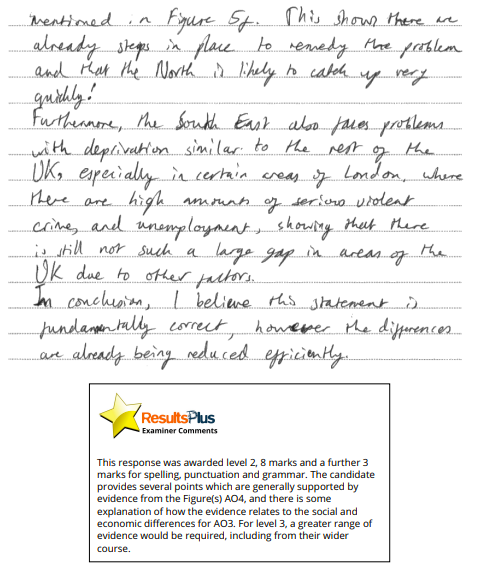 mentioned in Figure 5f. This shows there are
already steps in place to remedy the problem
and that the North is likely to catch up very
quickly!
Furthermore, the South East also faces problems
with deprivation similar to the rest of the
UK, especially in certain areas of London, where
there are high amounts of serious violent
crime, and unemployment, showing that there
is still not such a large gap in areas of the
UK due to other factors.
In conclusion, I believe this statement is
fundamentally correct, however the differences
are already being reduced efficiently.
ResultsPlus
Examiner Comments
This response was awarded level 2, 8 marks and a further 3
marks for spelling, punctuation and grammar. The candidate
provides several points which are generally supported by
evidence from the Figure(s) AO4, and there is some
explanation of how the evidence relates to the social and
economic differences for AO3. For level 3, a greater range of
evidence would be required, including from their wider
course.